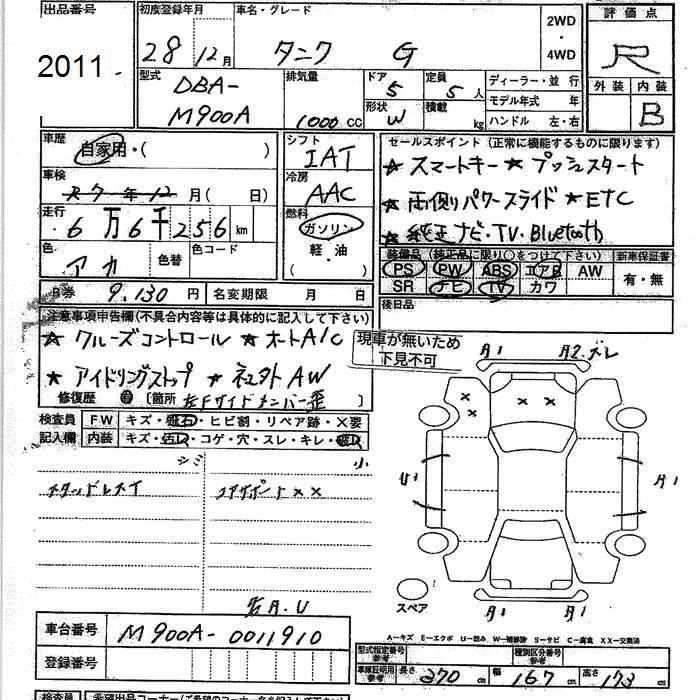 出品番号 初度登録年月 車名・グレード 2WD ・ 4WD 評価点
2011 28年12月 タンク G R
型式 DBA-M900A 排気量 1000 CC ドア 5 形状 W 定員 5 人 積載 kg ディーラー・並行 モデル年式 年 ハンドル 左・右 外装 内装 B
車歴 自家用・( ) シフト IAT セールスポイント (正常に機能するものに限ります)
車検 R7年12月( 日) 冷房 AAC ★スマートキー ★プッシュスタート
走行 6万6千256km 燃料 ガソリン 軽・油 ( ) ★両側パワースライド ★ETC
色 アカ 色替 色コード ★純正ナビ・TV・Bluetooth
装備品 (純正品に限り○をつけて下さい) 新車保証書
PS PW ABS エアB AW 有・無
SR ナビ TV カワ
R券 9.130円 名変期限 月 日 後日品
注意事項申告欄(不具合内容等は具体的に記入して下さい)
★クルーズコントロール ★オートA/C
現車が無いため
下見不可
★アイドリングストップ ★社外AW
修復歴 有 [箇所 左Fサイドメンバー歪
検査員 FW キズ・飛石・ヒビ割・リペア跡・×要
記入欄 内装 キズ・汚レ・コゲ・穴・スレ・キレ・破レ
シミ 小
スタッドレスタイ コアサポートXX
A1 A2.ズレ
U1 A1
スペア
A1 A1
右A.U
A−キズ E−エクボ U−凹み W−補修跡 S−サビ C−腐食 XX−交換済
車台番号 M900A-0011910
型式指定番号 参考 種別区分番号 参考
登録番号
車庫証明用 参考 長さ 370 cm 幅 167 cm 高さ 173 cm
検査員 希望出品コーナー(ご希望のコーナー名を記入して下さい)